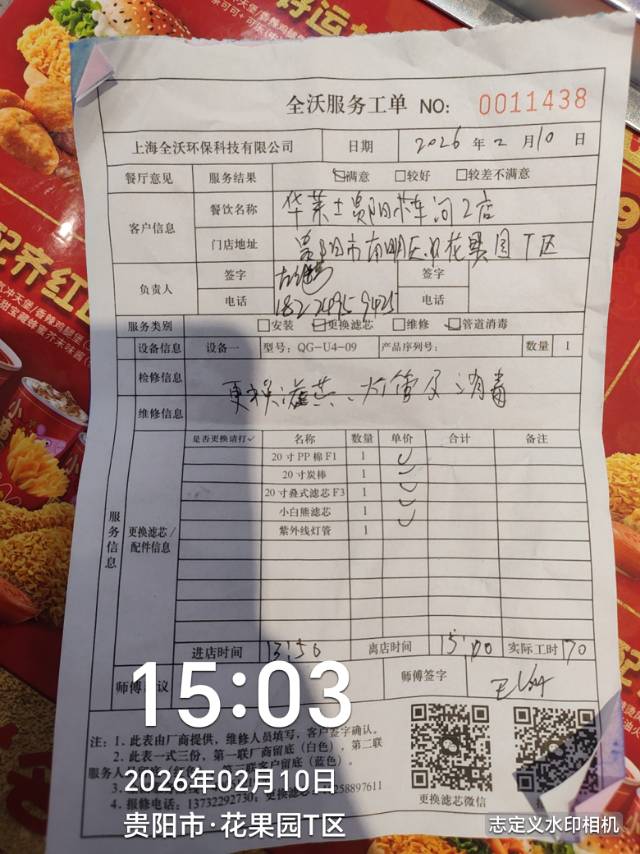 全沃服务工单 NO: 0011438
上海全沃环保科技有限公司 日期 2026年2月10日
餐厅意见 服务结果 ☑满意 □较好 □较差不满意
客户信息 餐饮名称 华莱士贵阳 车河2店
门店地址 贵阳市南明区 花果园T区
负责人 签字 签字
电话 电话
服务类别 □安装 ☑更换滤芯 □维修 ☑管道消毒
设备信息 设备一 型号: QG-U4-09 产品序列号: 数量 1
检修信息
更换滤芯、灯管及消毒
维修信息
服务信息
更换滤芯/配件信息
是否更换请打✓ 名称 数量 单价 合计 备注
20寸PP棉F1 1 ✓
20寸炭棒 1 ✓
20寸叠式滤芯F3 1 ✓
小白熊滤芯 1 ✓
紫外线灯管 1
进店时间 13:50 离店时间 15:00 实际工时 70
师傅 议 师傅签字
注: 1、此表由厂商提供,维修人员填写,客户签字确认。
2、此表一式三份,第一联厂商留底(白色),第二联
服务人员 ),第三联客户留底(蓝色)。
3、
4、报修电话:13732292730; 更换滤 258897611
更换滤芯微信
15:03
2026年02月10日
贵阳市·花果园T区
志定义水印相机